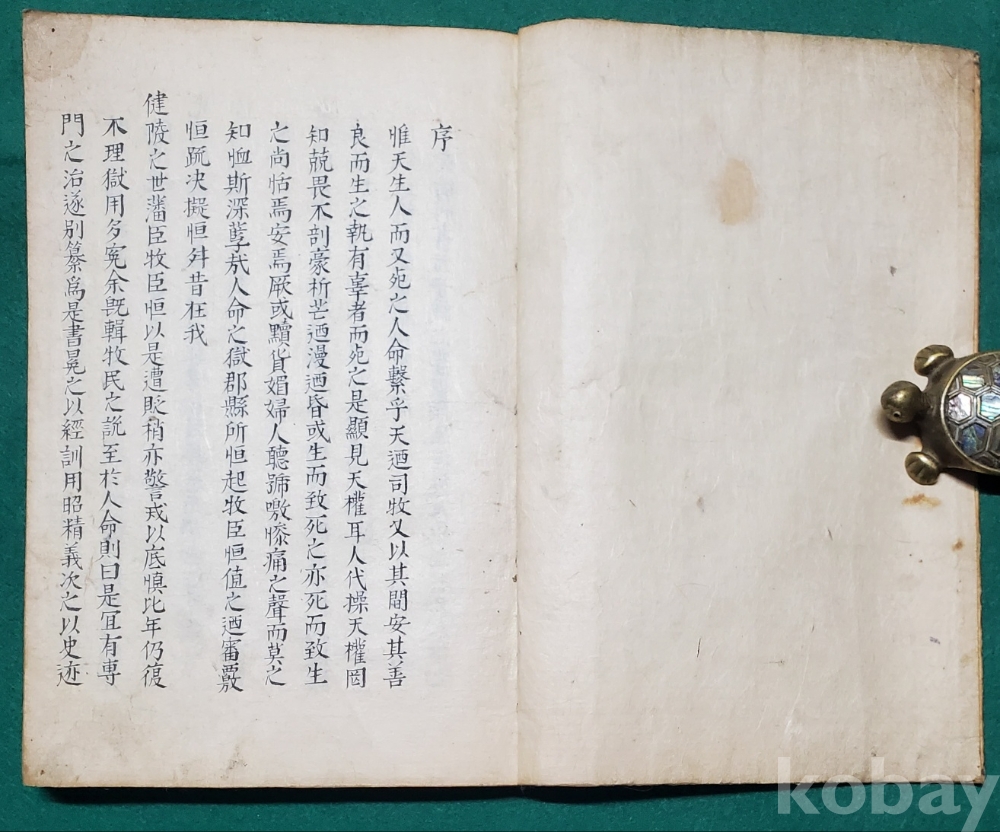 序
惟天生人而又死之人命繫乎天迺司牧又以其間安其善
良而生之執有辜者而死之是顯見天權耳人代操天權罔
知兢畏不剖豪析芒迺漫迺昏或生而致死之亦死而致生
之尚恬焉安焉厥或黷貨媚婦人聽號噭慘痛之聲而莫之
知恤斯深孼哉人命之獄郡縣所恒起牧臣恒值之迺審覈
恒疏决擬恒舛昔在我
健陵之世藩臣牧臣恒以是遭貶稍亦警戒以底愼比年仍復
不理獄用多冤余旣輯牧民之說至於人命則曰是宜有專
門之治遂別纂爲是書冕之以經訓用昭精義次之以史迹
kobay